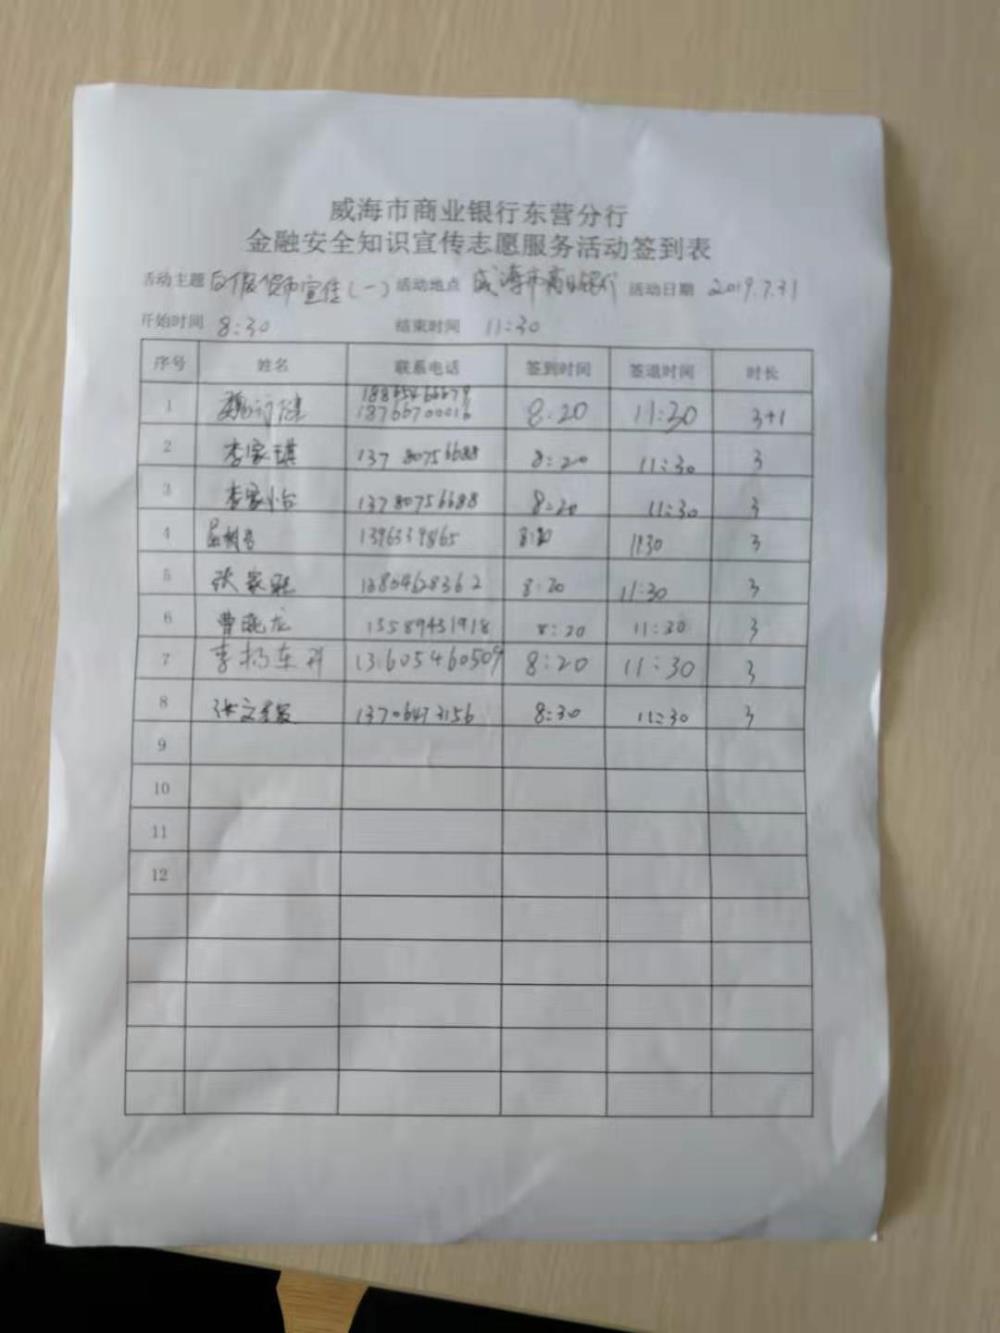 威海市商业银行东营分行
金融安全知识宣传志愿服务活动签到表
活动主题 反假货币宣传(一) 活动地点 威海市商业银行 活动日期 2019.7.31
开始时间 8:30 结束时间 11:30
序号 姓名 联系电话 签到时间 签退时间 时长
1 18766700016 8:20 11:30 3+1
2 李家琪 13780756688 8:20 11:30 3
3 李家怡 13780756688 8:20 11:30 3
4 1396539865 8:20 11:30 3
5 张家 13854628362 8:20 11:30 3
6 曹晓龙 15589431918 8:20 11:30 3
7 李杨东 13605460509 8:20 11:30 3
8 张文 13706473156 8:30 11:30 3
9
10
11
12